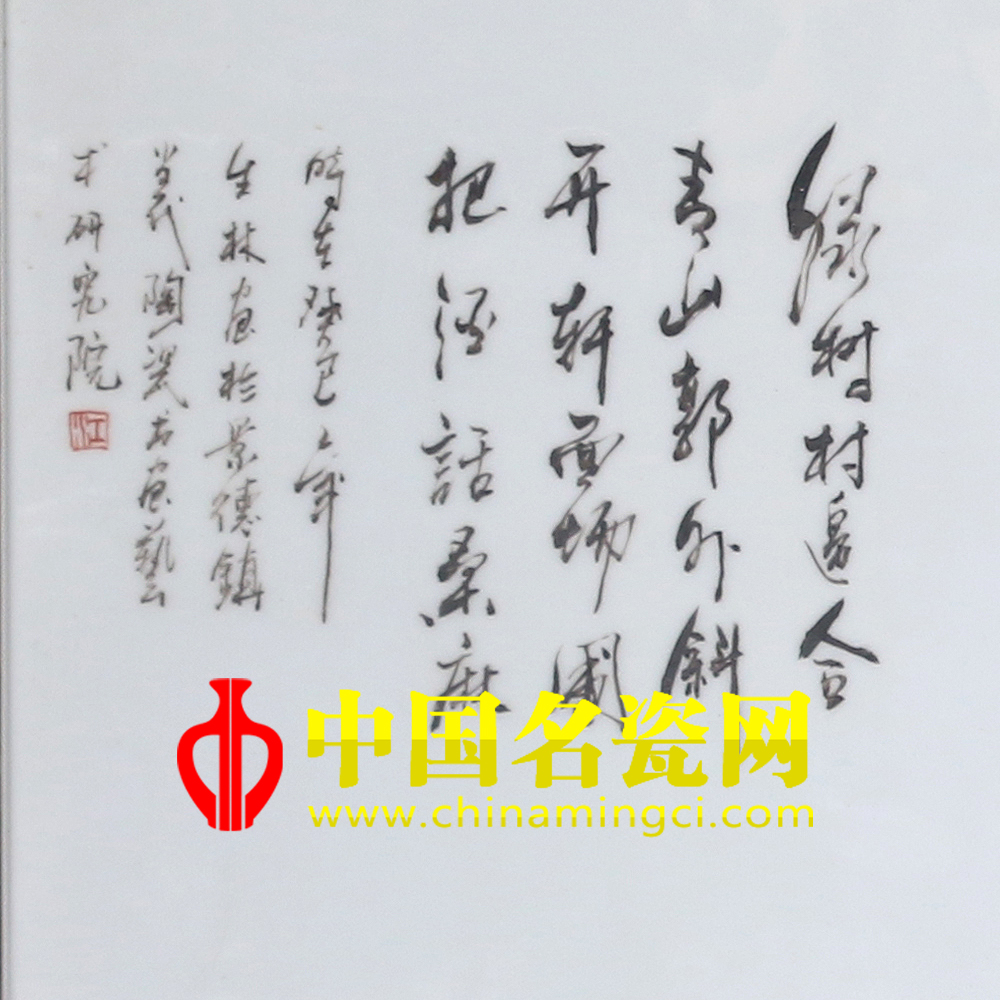 綠樹村邊合
青山郭外斜
開軒面場圃
把酒話桑麻
時在癸巳年
生林畫於景德鎮
當代陶瓷書畫藝
术研究院
江
中国名瓷网
www.chinamingci.com